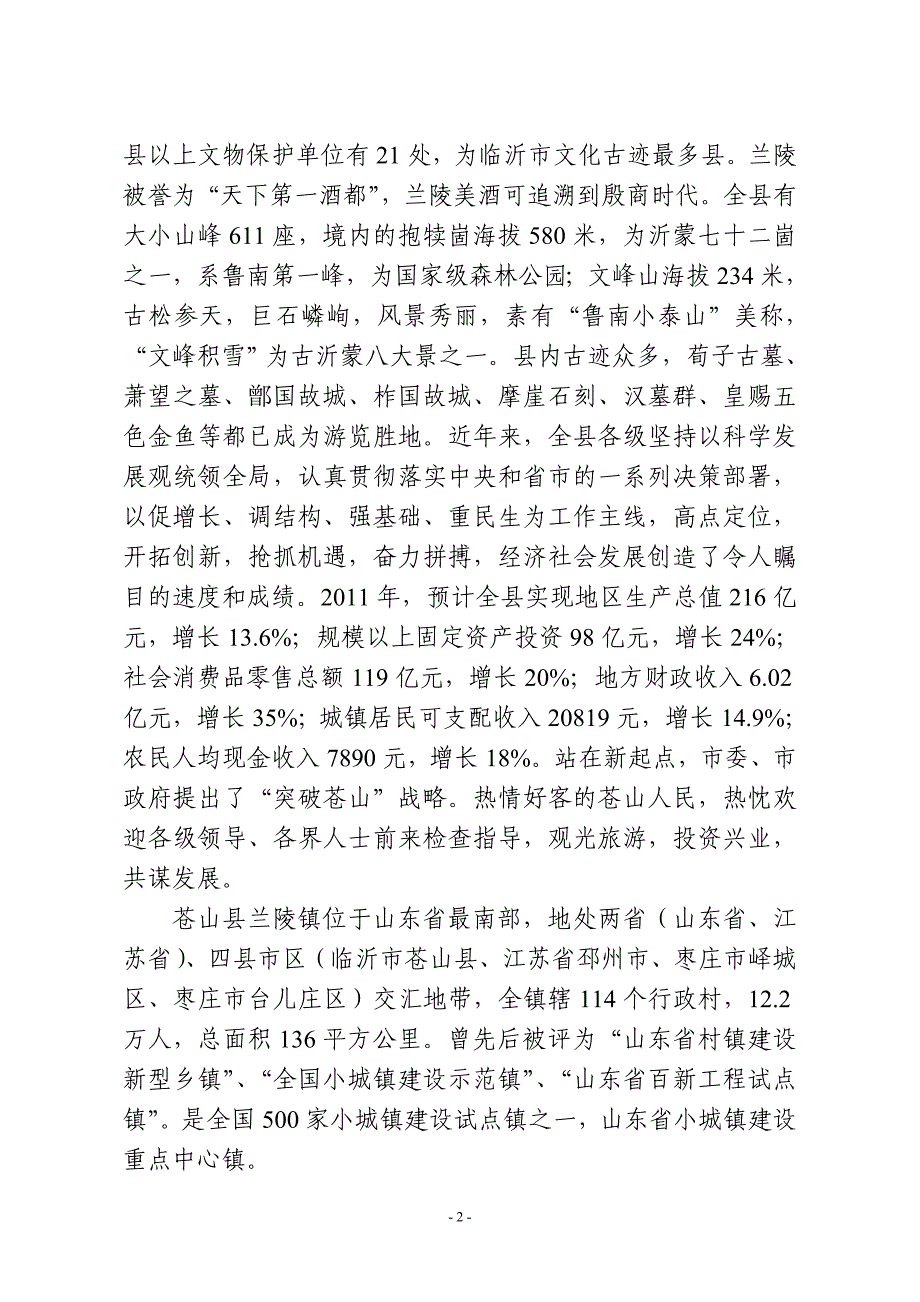 县以上文物保护单位有 21 处，为临沂市文化古迹最多县。兰陵
被誉为“天下第一酒都”，兰陵美酒可追溯到殷商时代。全县有
大小山峰 611 座，境内的抱犊崮海拔 580 米，为沂蒙七十二崮
之一，系鲁南第一峰，为国家级森林公园；文峰山海拔 234 米，
古松参天，巨石嶙峋，风景秀丽，素有“鲁南小泰山”美称，
“文峰积雪”为古沂蒙八大景之一。县内古迹众多，荀子古墓、
萧望之墓、鄫国故城、柞国故城、摩崖石刻、汉墓群、皇赐五
色金鱼等都已成为游览胜地。近年来，全县各级坚持以科学发
展观统领全局，认真贯彻落实中央和省市的一系列决策部署，
以促增长、调结构、强基础、重民生为工作主线，高点定位，
开拓创新，抢抓机遇，奋力拼搏，经济社会发展创造了令人瞩
目的速度和成绩。2011 年，预计全县实现地区生产总值 216 亿
元，增长 13.6%；规模以上固定资产投资 98 亿元，增长 24%；
社会消费品零售总额 119 亿元，增长 20%；地方财政收入 6.02
亿元，增长 35%；城镇居民可支配收入 20819 元，增长 14.9%；
农民人均现金收入 7890 元，增长 18%。站在新起点，市委、市
政府提出了“突破苍山”战略。热情好客的苍山人民，热忱欢
迎各级领导、各界人士前来检查指导，观光旅游，投资兴业，
共谋发展。
苍山县兰陵镇位于山东省最南部，地处两省（山东省、江
苏省）、四县市区（临沂市苍山县、江苏省邳州市、枣庄市峄城
区、枣庄市台儿庄区）交汇地带，全镇辖 114 个行政村，12.2
万人，总面积 136 平方公里。曾先后被评为“山东省村镇建设
新型乡镇”、“全国小城镇建设示范镇”、“山东省百新工程试点
镇”。是全国 500 家小城镇建设试点镇之一，山东省小城镇建设
重点中心镇。
- 2 -